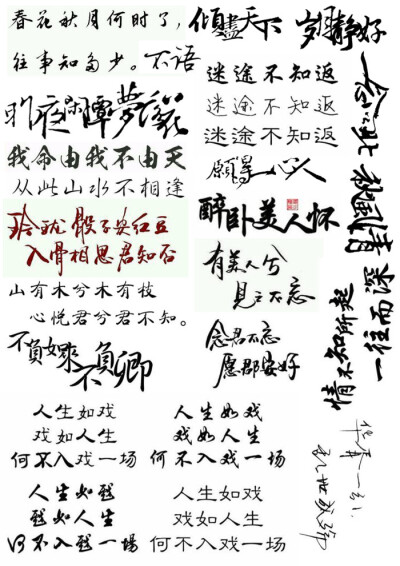 春花秋月何时了，
往事知多少。
不语
倾尽天下
岁月静好
迷途不知返
迷途不知返
迷途不知返
昨夜闲潭梦落花
愿得一心人
我命由我不由天
从此山水不相逢
醉卧美人怀
玲珑骰子安红豆
入骨相思君知否
有美人兮
见之不忘
山有木兮木有枝
心悦君兮君不知。
念君不忘
愿郡安好
不负如来
不负卿
情不知所起
一往而深
人生如戏
戏如人生
何不入戏一场
人生如戏
戏如人生
何不入戏一场
人生如戏
戏如人生
何不入戏一场
人生如戏
戏如人生
何不入戏一场